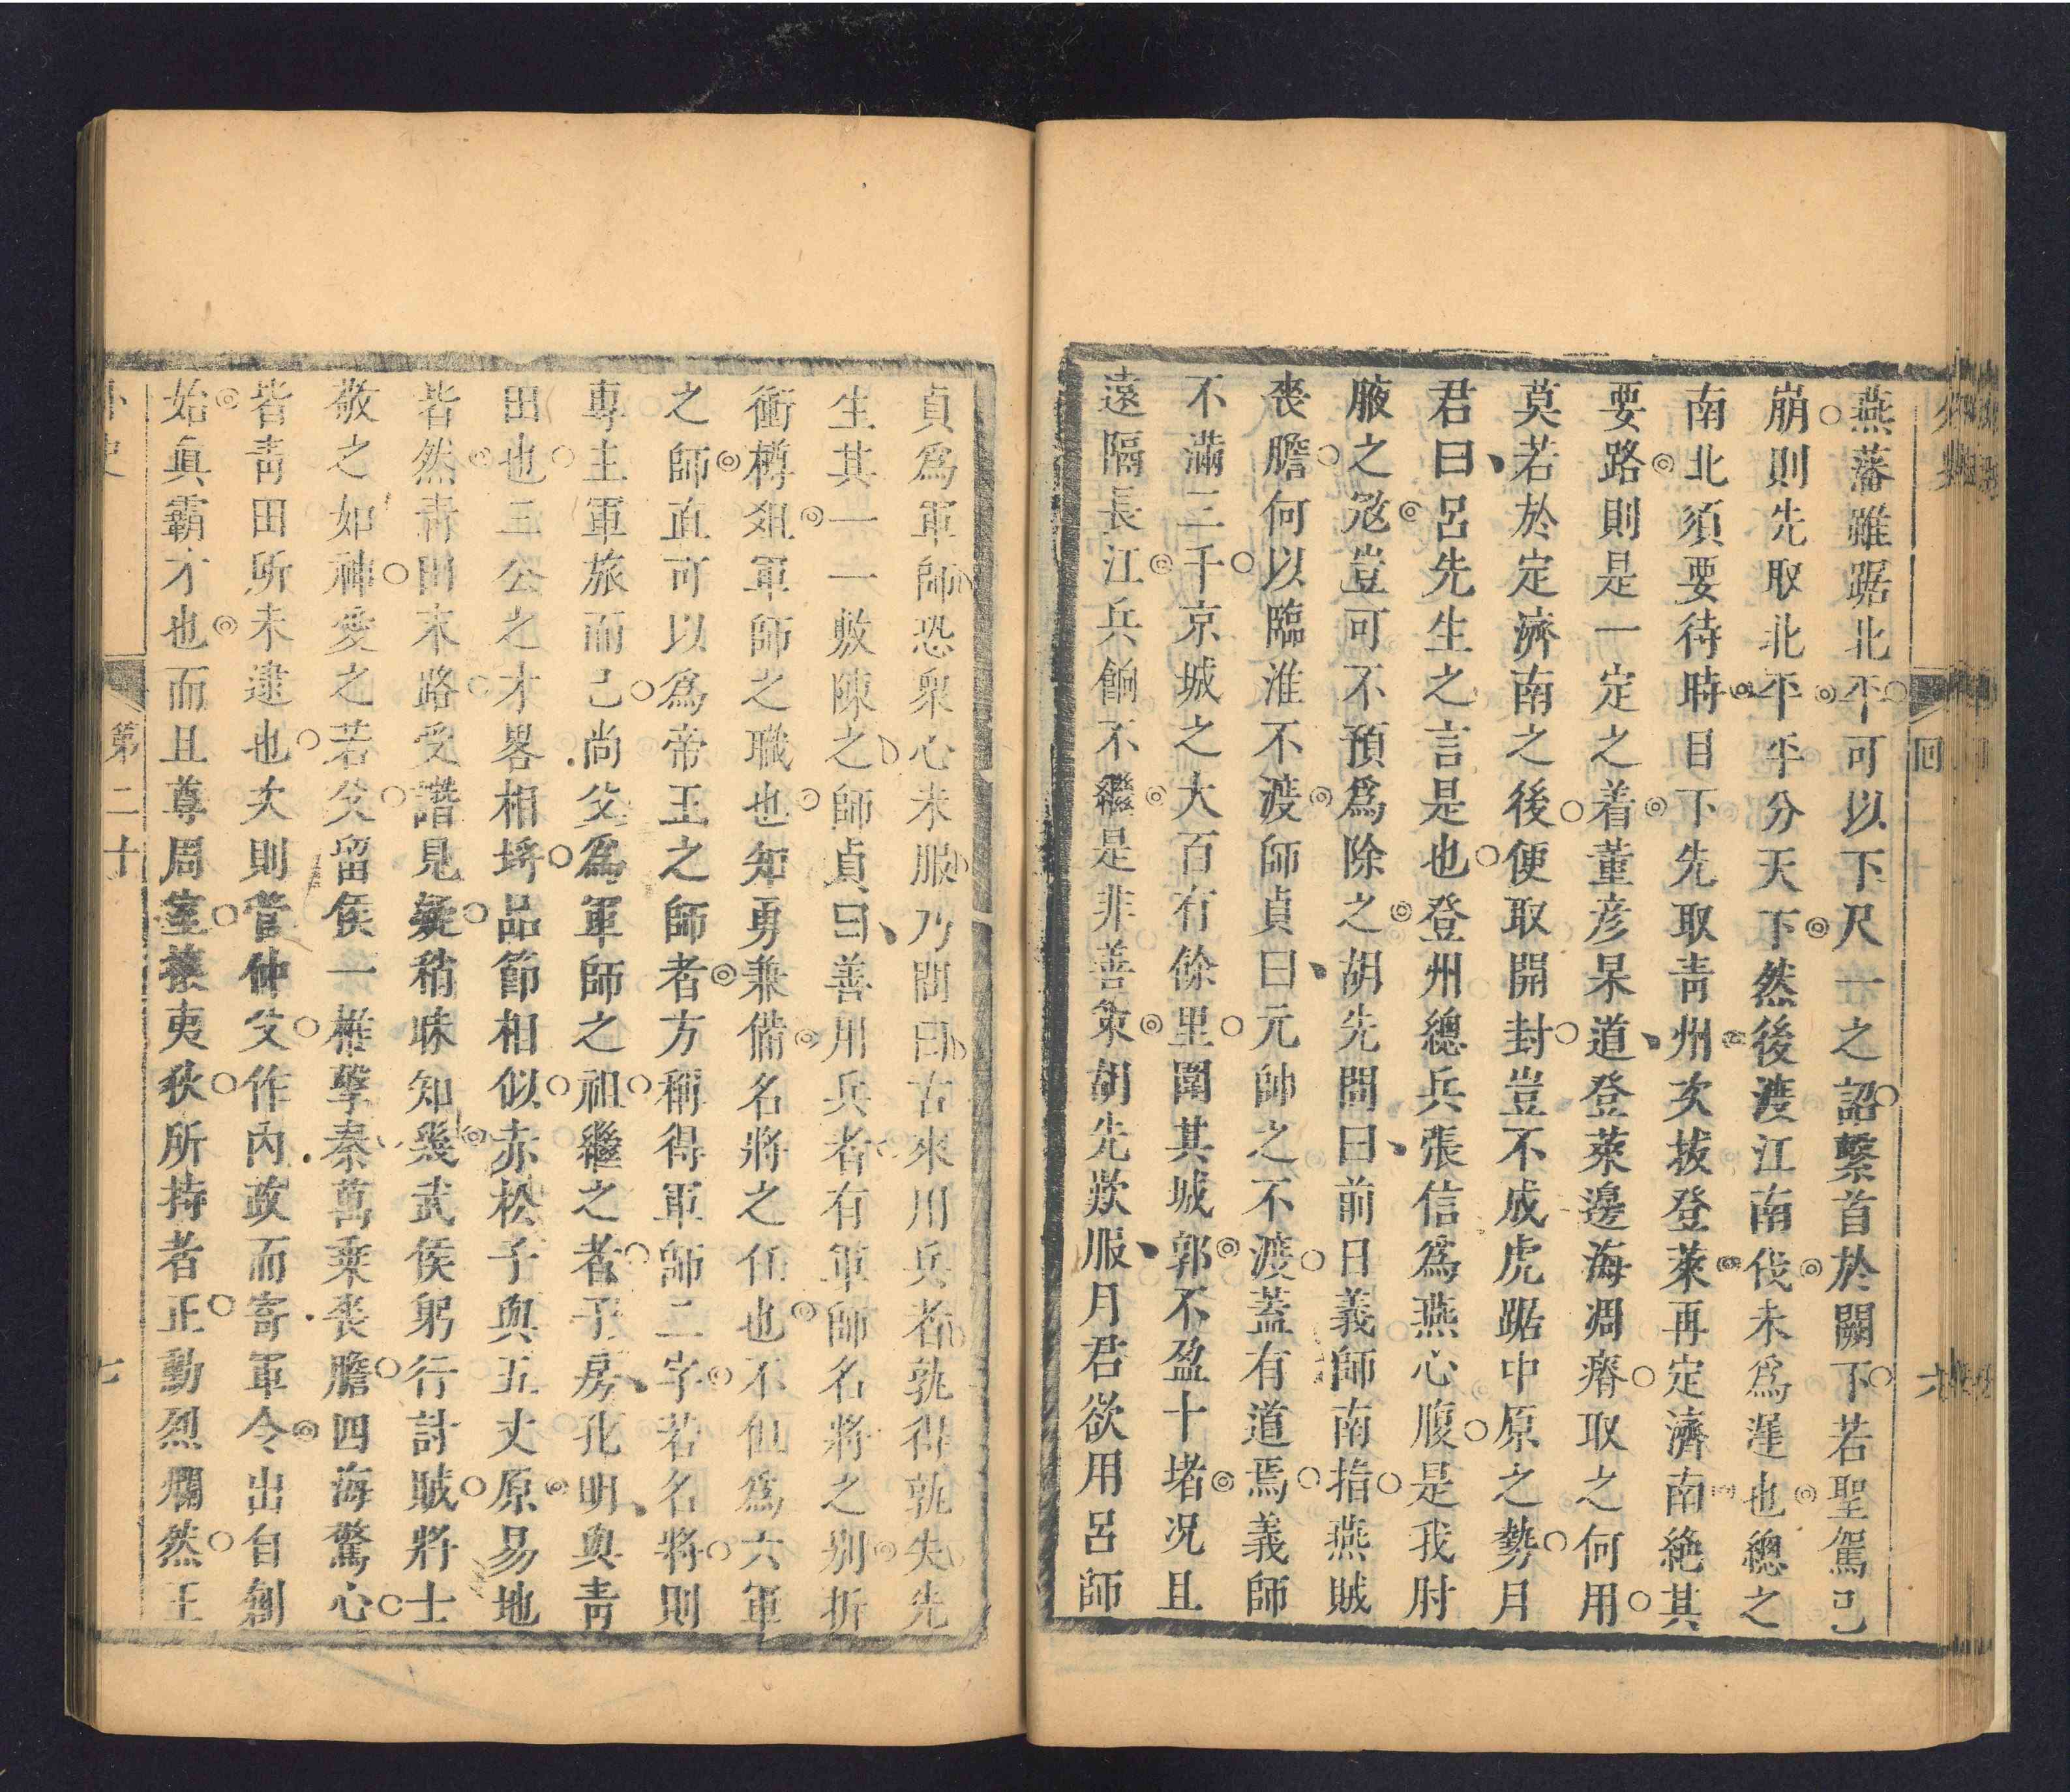 燕藩雖踞北平可以下尺一之詔繫首於闕下若聖駕已
崩則先取北平平分天下然後渡江南伐未爲遲也總之
南北須要待時目下先取靑州次拔登萊再定濟南絶其
要路則是一定之着董彦杲道登萊邊海凋瘠取之何用
莫若於定濟南之後便取開封豈不成虎踞中原之勢月
君曰呂先生之言是也登州總兵張信爲燕心腹是我肘
腋之冦豈可不預爲除之胡先問曰前日義師南指燕賊
喪膽何以臨淮不渡師貞曰元帥之不渡蓋有道焉義師
不滿三千京城之大百有餘里圍其城郭不盈十堵况且
遠隔長江兵餉不繼是非善策胡先歎服月君欲用呂師
貞爲軍師恐衆心未服乃問曰古來用兵者孰得孰失先
生其一一敷陳之師貞曰善用兵者有軍師名將之别折
衝樽俎軍師之職也知勇兼備名將之任也不但爲六軍
之師直可以爲帝王之師者方稱得軍師二字若名將則
專主軍旅而已尚父爲軍師之祖繼之者子房孔明與靑
田也三公之才畧相埒品節相似赤松子與五丈原易地
皆然靑田末路受譖見疑稍昧知幾武侯躬行討賊將士
敬之如神愛之若父留侯一椎擊秦萬乘喪膽四海驚心
皆靑田所未逮也次則管仲父作內政而寄軍令出自創
始眞霸才也而且尊周室攘夷狄所持者正勳烈爛然王
外史
第二十
七